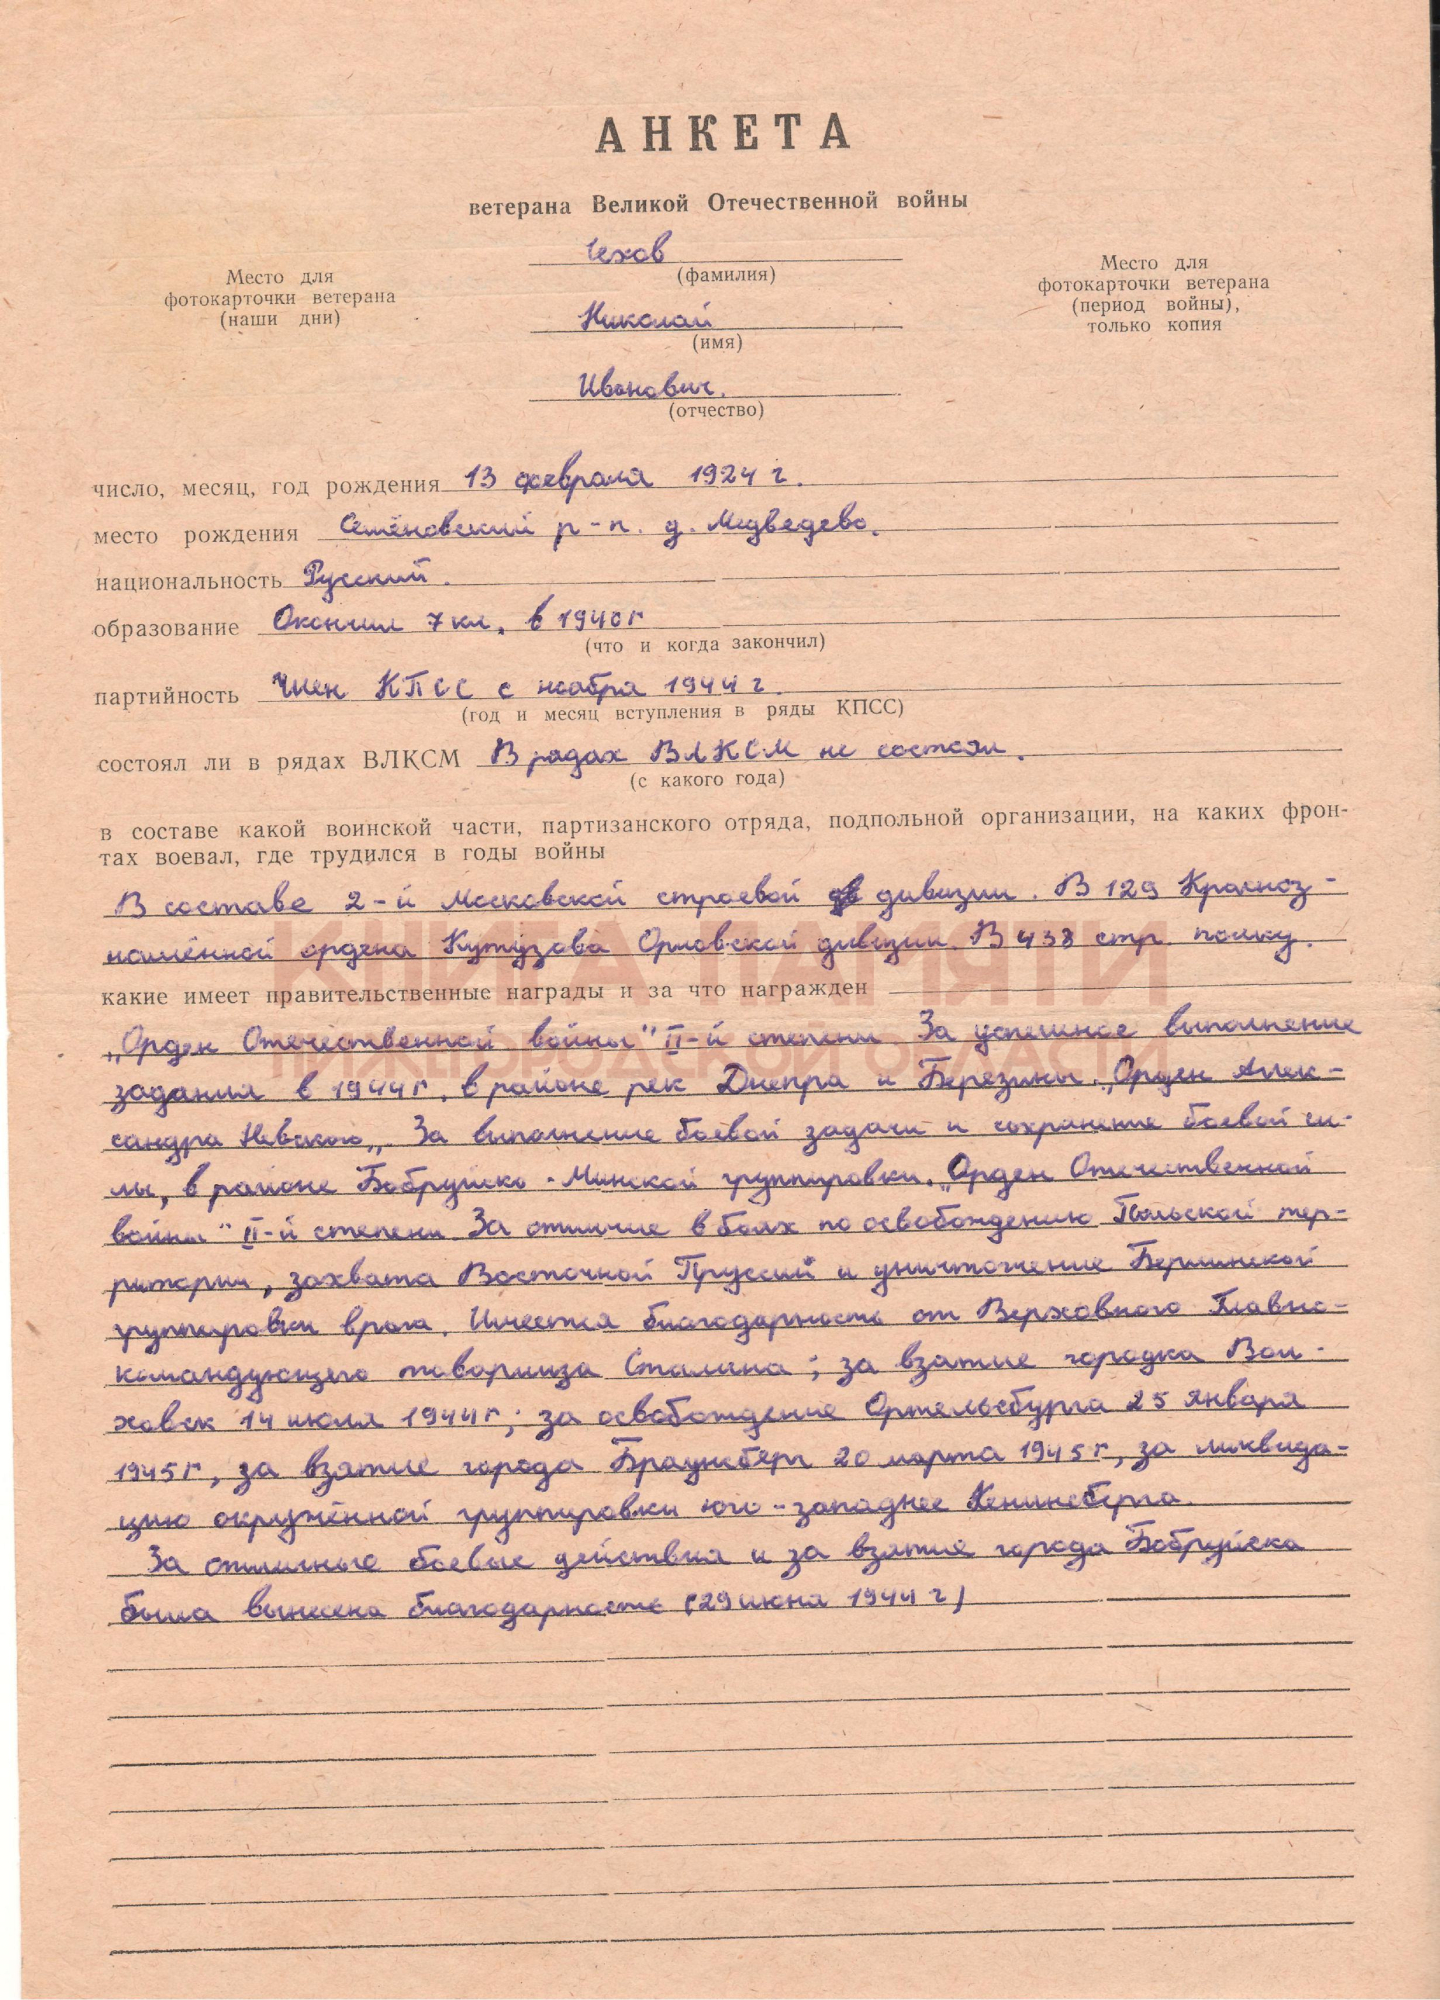 АНКЕТА
ветерана Великой Отечественной войны
Чехов
(фамилия)
Место для
фотокарточки ветерана
(наши дни)
Место для
фотокарточки ветерана
(период войны),
только копия
Николай
(имя)
Иванович.
(отчество)
число, месяц, год рождения 13 февраля 1924 г.
место рождения Семёновский р-н. д. Медведево.
национальность Русский.
образование Окончил 7 кл. в 1940 г
(что и когда закончил)
партийность Член КПСС с ноября 1944 г.
(год и месяц вступления в ряды КПСС)
состоял ли в рядах ВЛКСМ В рядах ВЛКСМ не состоял.
(с какого года)
в составе какой воинской части, партизанского отряда, подпольной организации, на каких фрон-
тах воевал, где трудился в годы войны
В составе 2-й Московской строевой дивизии. В 129 Красноз-
намённой ордена Кутузова Орловской дивизии. В 438 стр. полку.
КНИГА ПАМЯТИ
НИЖЕГОРОДСКОЙ ОБЛАСТИ
какие имеет правительственные награды и за что награжден
„Орден Отечественной войны" II-й степени. За успешное выполнение
задания в 1944 г. в районе рек Днепра и Березины. „Орден Алек-
сандра Невского„ За выполнение боевой задачи и сохранение боевой си-
лы, в районе Бобруйско-Минской группировки. „Орден Отечественной
войны" II-й степени За отличие в боях по освобождению Польской тер-
ритории, захвата Восточной Пруссии и уничтожение Берлинской
группировки врага. Имеется благодарность от Верховного Главно-
командующего товарища Сталина; за взятие городка Вол-
ховск 14 июля 1944 г; за освобождение Ортельсбурга 25 января
1945 г, за взятие города Браунсберг 20 марта 1945 г, за ликвида-
цию окружённой группировки юго-западнее Кенинсберга.
За отличные боевые действия и за взятие города Бобруйска
была вынесена благодарность (29 июня 1944 г)